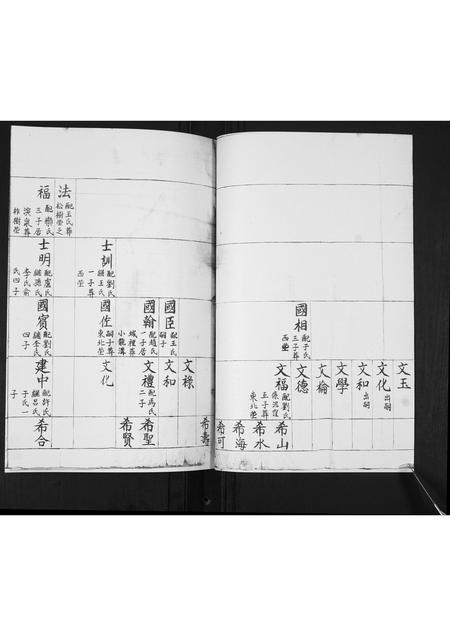 文玉
文化 出嗣
文和 出嗣
文學
文倫
文德
國相 配于氏
三子葬
西塋
文福 配劉氏
王子葬
東北塋
希山
希水
希海
希可
希壽
文祿
國臣 配王氏
嗣子
文和
國翰 配趙氏
一子居
城裡葬
小龍溝
文禮 配馬氏
二子
希聖
希賢
士訓 配劉氏
繼王氏
一子葬
西塋
國佐 配
嗣子葬
東北塋
文化
法 配王氏葬
松樹塋之
福 配
三子居
葬
柞樹塋
士明 配盧氏
繼孫氏
李氏俞
氏四子
國賓 配劉氏
繼李氏
四子
建中 配許氏
繼呂氏
于氏一
子
希合